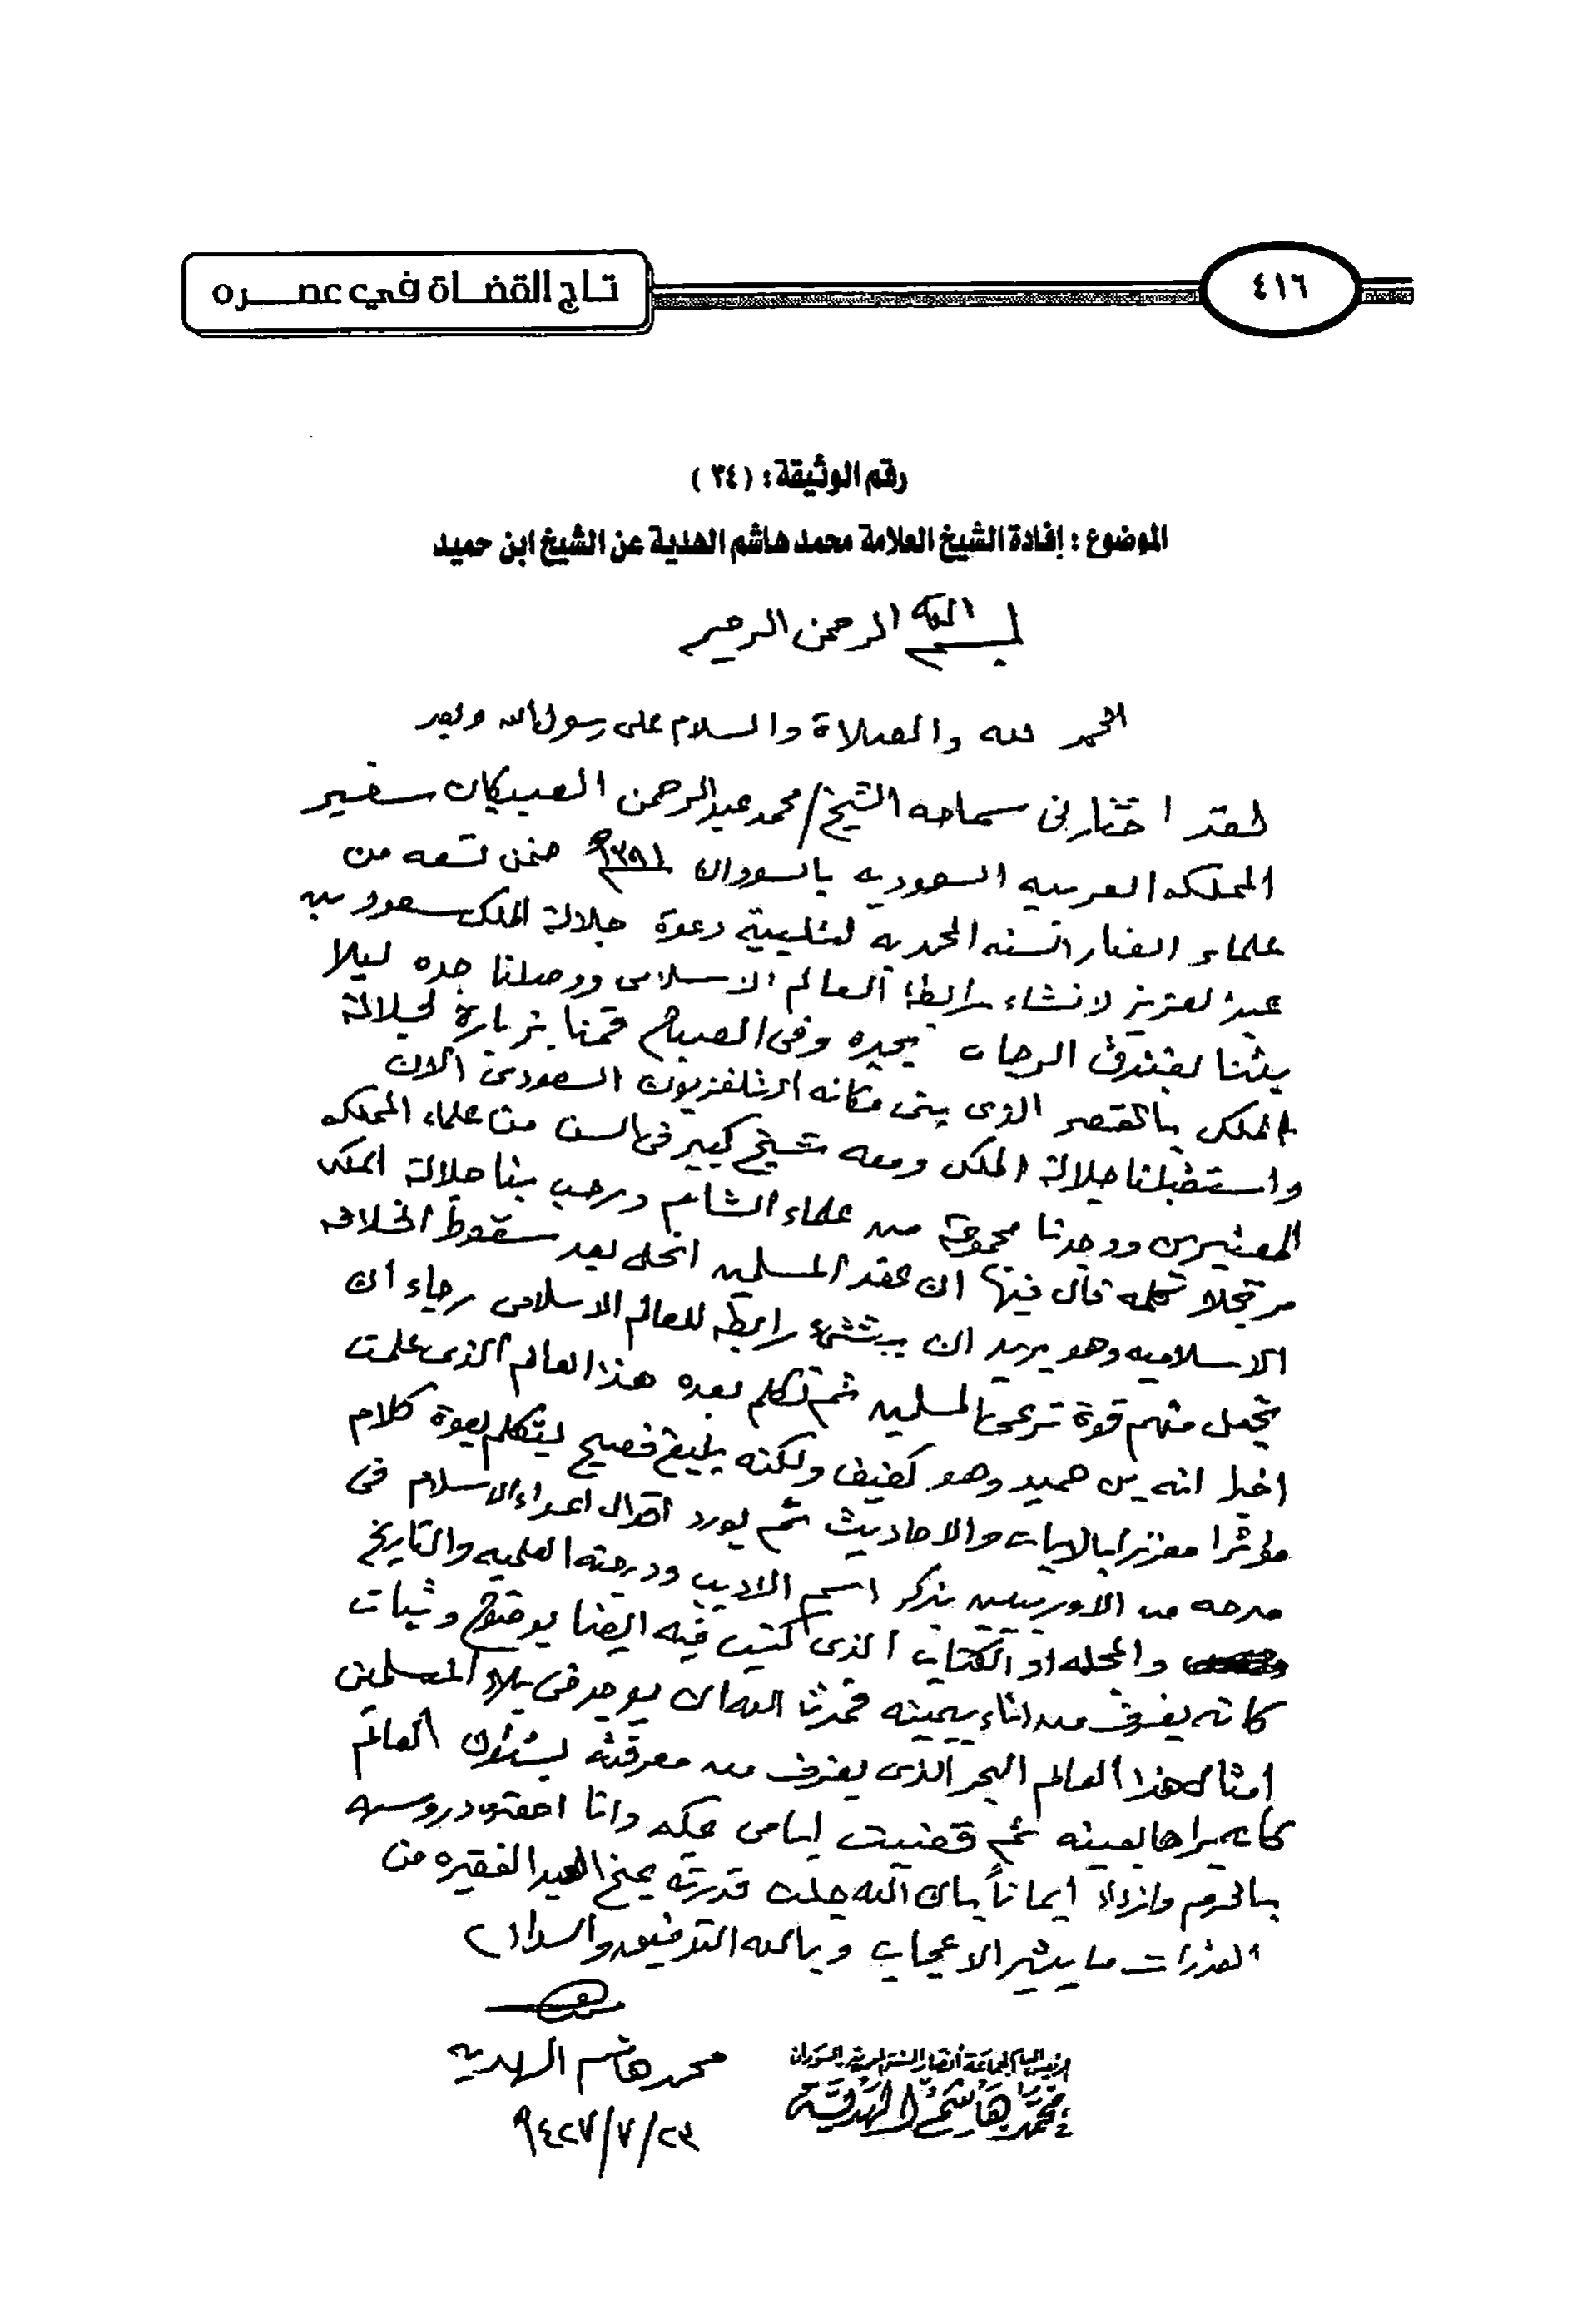 تاج القضاة في عصره
٤١٦
رقم الوثيقة : ( ٣٤ )
الموضوع : إفادة الشيخ العلامة محمد هاشم الهدية عن الشيخ ابن حميد
بسم الله الرحمن الرحيم
الحمد لله والصلاة والسلام على رسول الله وبعد
لقد اختارنى سماحه الشيخ / محمد عبدالرحمن العبيكان سفير
المملكه العربيه السعوديه بالسودان ضمن تسعه من
علماء انصار السنه المحمديه لتلبية دعوة جلالة الملك سعود بن
عبدالعزيز لانشاء رابطة العالم الاسلامى ووصلنا جده ليلا
بتنا بفندق الرحاب بجده وفى الصباح قمنا بزيارة لجلالة
الملك بالقصر الذى بنى مكانه التلفزيون السعودى الان
واستقبلنا جلالة الملك ومعه شيخ كبير فى السن من علماء المملكه
المعتبرين ووجدنا مجموعة من علماء الشام ورحب بنا جلالة الملك
مرتجلا كلمه قال فيها ان عقد المسلمين انحل بعد سقوط الخلافه
الاسلاميه وهو يريد ان ينشئ رابطه للعالم الاسلامى رجاء ان
تجعل منهم قوة ترعى المسلمين ثم تكلم بعده هذا العالم الذى علمت
اخيرا انه بن حميد وهو كفيف ولكنه بليغ فصيح ليتكلم بقوة كلام
مؤثرا معززا بالايات والاحاديث ثم يورد اقوال اعداء الاسلام فى
من الاوربيين بذكر اسم الاديب ودرجته العلميه والتاريخ
والمجله او الكتاب الذى كتب فيه ايضا بوضوح وثبات
كانه يغرف من اناء بيمينه فحمدنا الله ان يوجد فى بلاد المسلمين
امثال هذا العالم البحر الذى يغرف من معرفته بشئون العالم
كانه يراها بعينه ثم قضيت ايامى بمكه وانا احضر دروسه
بالحرم وازداد ايماناً بان الله جلت قدرته يمنح العبد الفقيره من
القدرات ما يثير الاعجاب وبالله التوفيق والسداد
محمد هاشم الهديه
٢٣/٧/١٤٢٧
الرئيس العام لجماعة أنصار السنة المحمدية بالسودان
محمد هاشم الهدية